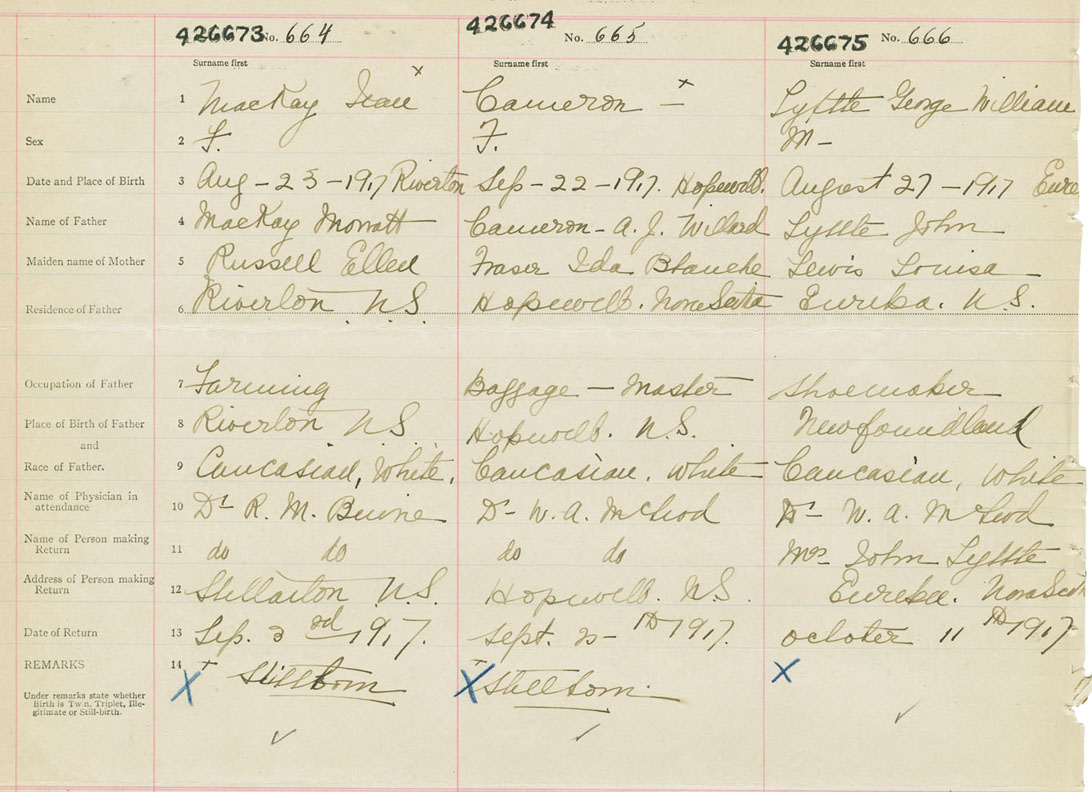 426673 No. 664 426674 No. 665 426675 No. 666
Surname first Surname first Surname first
Name 1 MacKay Jean x Cameron — x Lyttle George William
Sex 2 F. F. M —
Date and Place of Birth 3 Aug - 23 - 1917 Riverton Sep - 22 - 1917. Hopewell. August 27 - 1917 Eure
Name of Father 4 MacKay Cameron - A. J. Willard Lyttle John
Maiden name of Mother 5 Russell Ellen Fraser Ida Blanche Lewis Louisa
Residence of Father 6 Riverton N.S. Hopewell. Nova Scotia Eureka. N.S.
Occupation of Father 7 Farming Baggage — Master Shoemaker
Place of Birth of Father 8 Riverton N S Hopewell. N.S. Newfoundland
and
Race of Father. 9 Caucasian, White. Caucasian. White Caucasian, White
Name of Physician in
attendance 10 Dr R. M. Dr W. A. McLeod Dr W. A. McLeod
Name of Person making
Return 11 do do do do Mrs John Lyttle
Address of Person making
Return 12 Stellarton N.S. Hopewell. N.S. Eureka. Nova Scot
Date of Return 13 Sep. 3rd 1917. Sept. 1917. October 11th 1917
REMARKS 14 x Stillborn x Stillborn. X
Under remarks state whether
Birth is Twin, Triplet, Ille-
gitimate or Still-birth.